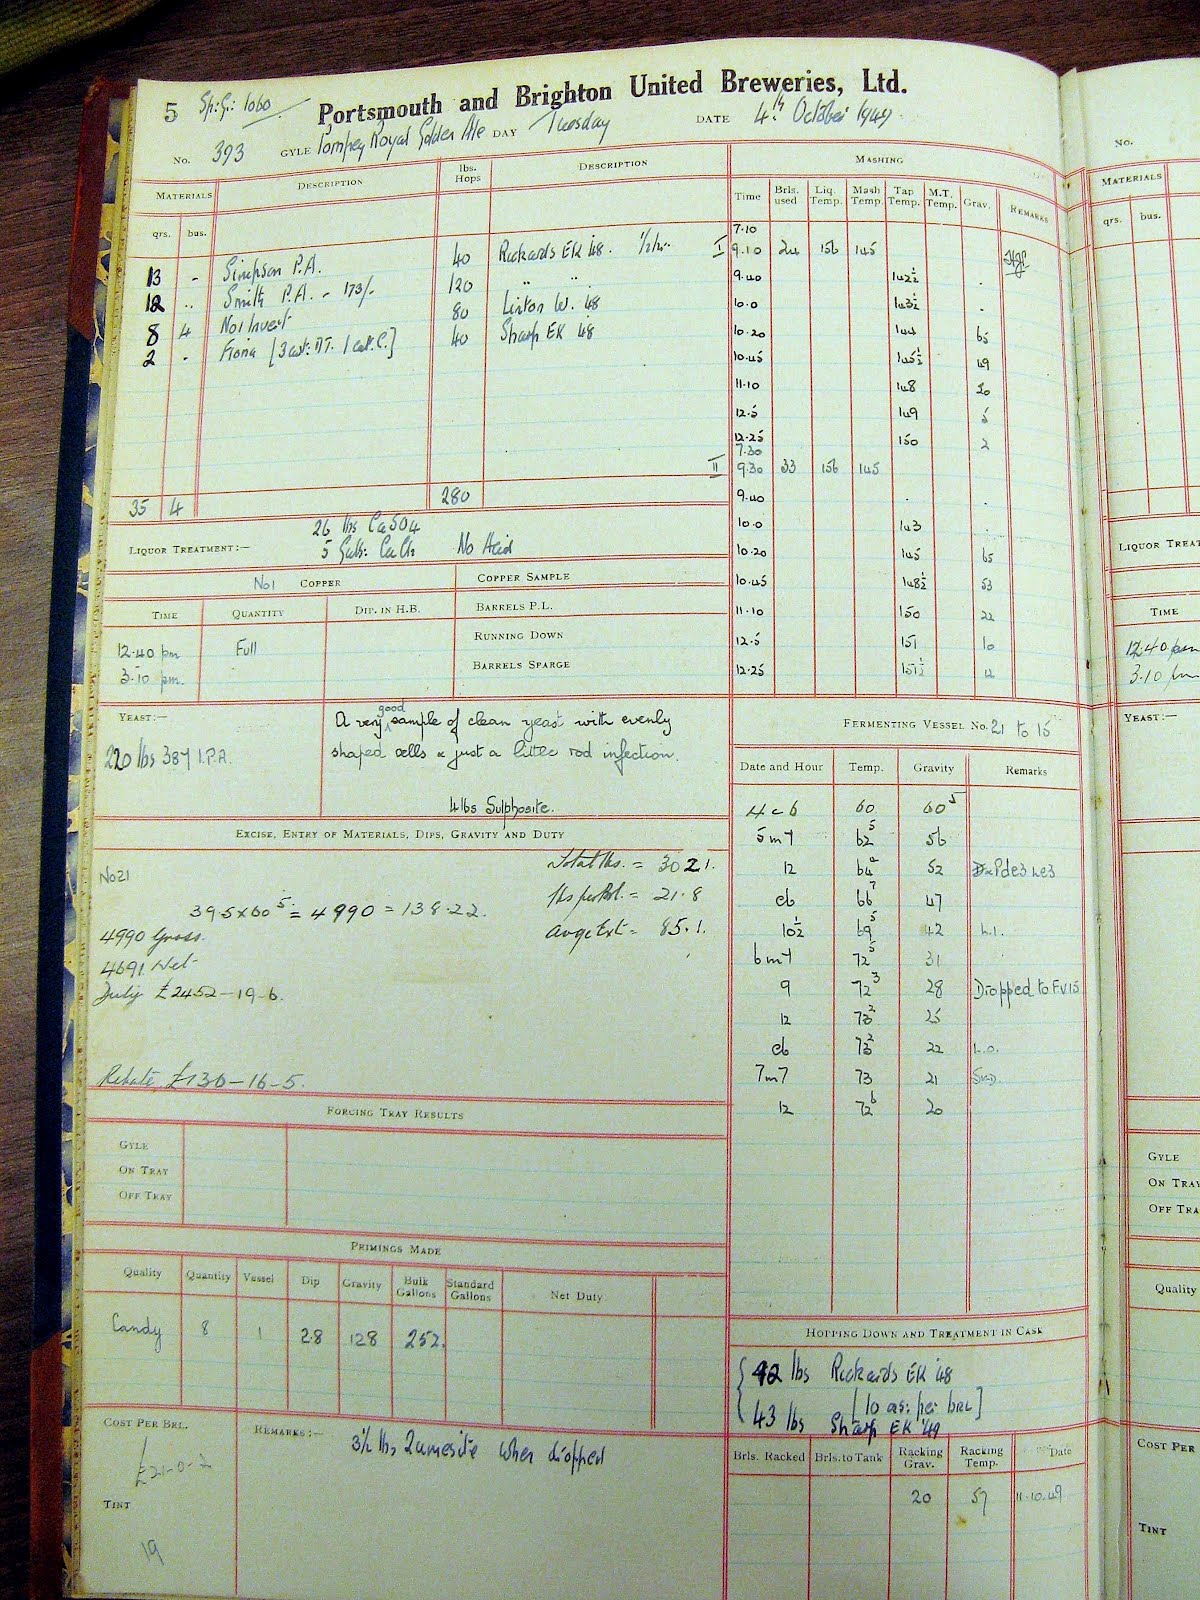 5 Sp: G: 1060
Portsmouth and Brighton United Breweries, Ltd.
No. 393 GYLE Pompey Royal Golden Ale DAY Tuesday DATE 4th October 1949.
MATERIALS DESCRIPTION lbs. Hops DESCRIPTION
qrs. bus.
13 - Simpson P.A. 40 Rickards EK '48.
12 .. Smith P.A. - 173/- 120 " "
8 4 No1 Invert 80 Linton W. '48
2 - 40 Sharp EK '48
35 4 280
LIQUOR TREATMENT:— 26 lbs CaSO4
5 Galls: CaCl2 No Acid
No1 COPPER COPPER SAMPLE
TIME QUANTITY DIP. IN H.B. BARRELS P.L.
RUNNING DOWN
12.40 pm Full
BARRELS SPARGE
3.10 pm.
YEAST:—
220 lbs 387 I.P.A.
A very good sample of clean yeast with evenly
shaped cells & just a little rod infection.
4lbs Sulphosite.
EXCISE, ENTRY OF MATERIALS, DIPS, GRAVITY AND DUTY
No21
Total lbs. = 3021.
lbs per Brl. = 21.8
Avge Ext = 85.1.
39.5 x 60 5 = 4990 = 138.22.
4990 Gross.
4691 Net
Duty £2452-19-6.
Rebate, £136-16-5.
FORCING TRAY RESULTS
GYLE
ON TRAY
OFF TRAY
PRIMINGS MADE
Quality Quantity Vessel Dip Gravity Bulk Gallons Standard Gallons Net Duty
Candy 8 1 2.8 128 252.
COST PER BRL.
£21-0-2
TINT
19
REMARKS:— 3½ lbs Zumesite when dropped
MASHING
Time Brls. used Liq. Temp. Mash Temp. Tap Temp. M.T. Temp. Grav. REMARKS
7.10
I 9.10 24 156 145
9.40 142½ .
10.0 143½ .
10.20 144 65
10.45 145½ 49
11.10 148 20
12.5 149 5
12.25 150 2
7.30
II 9.30 33 156 145
9.40 . .
10.0 143 .
10.20 145 65
10.45 148½ 53
11.10 150 22
12.5 151 10
12.25 151½
FERMENTING VESSEL No. 21 to 15
Date and Hour Temp. Gravity Remarks
4 e 6 60 60 5
5 m 7 62 5 56
12 64 2 52
e6 66 7 47
10½ 69 5 42 L.I.
6 m 7 72 5 31
9 72 3 28 Dropped to F.V.15
12 73 2 25
e6 73 2 22 L.O.
7 m 7 73 21
12 72 6 20
HOPPING DOWN AND TREATMENT IN CASK
42 lbs Rickards EK '48
[10 ozs: per BRL]
43 lbs Sharp EK '49
Brls. Racked Brls. to Tank Racking Grav. Racking Temp. Date
20 57 11.10.49
No.
MATERIALS
qrs. bus.
LIQUOR TREAT
TIME
12.40 pm
3.10 pm
YEAST:—
GYLE
ON TRAY
OFF TRA
Quality
COST PER
TINT